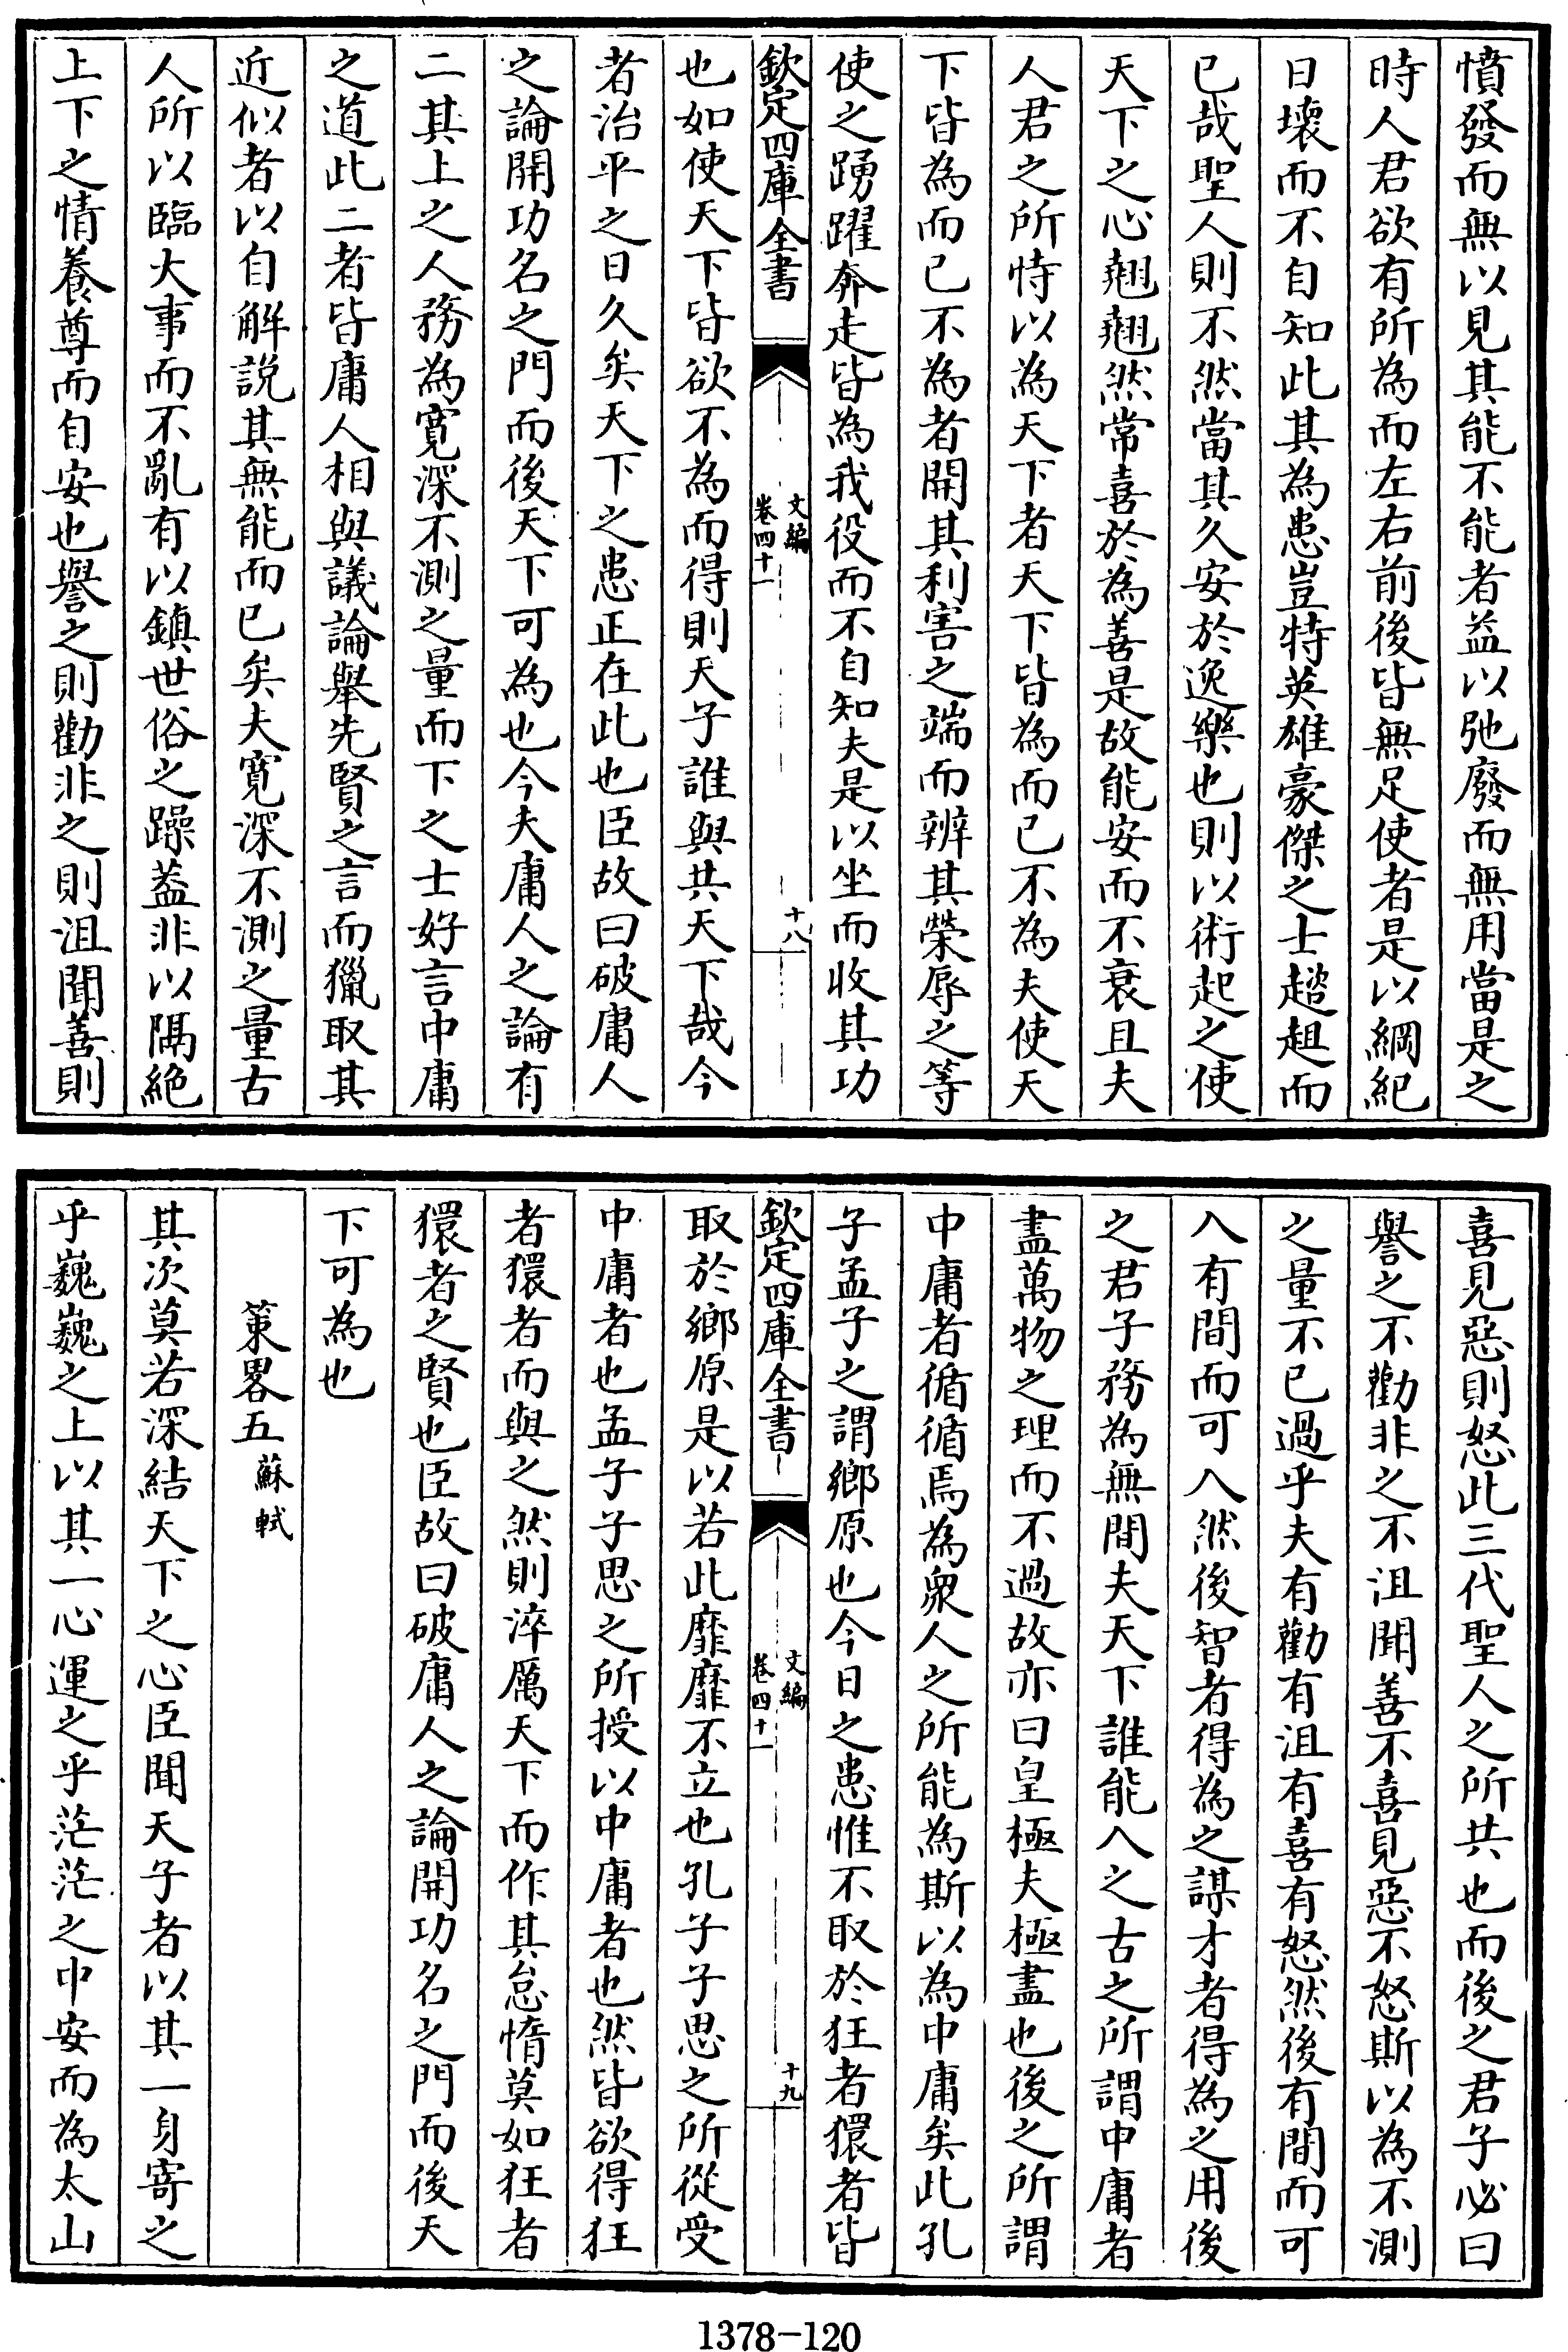 憤發而無以見其能不能者益以弛廢而無用當是之
時人君欲有所為而左右前後皆無足使者是以綱紀
日壞而不自知此其為患豈特英雄豪傑之士趦趄而
已哉聖人則不然當其久安於逸樂也則以術起之使
天下之心翹翹然常喜於為善是故能安而不衰且夫
人君之所恃以為天下者天下皆為而已不為夫使天
下皆為而已不為者開其利害之端而辨其榮辱之等
使之踴躍奔走皆為我役而不自知夫是以坐而收其功
欽定四庫全書
文編
卷四十一
十八
也如使天下皆欲不為而得則天子誰與共天下哉今
者治平之日久矣天下之患正在此也臣故曰破庸人
之論開功名之門而後天下可為也今夫庸人之論有
二其上之人務為寬深不測之量而下之士好言中庸
之道此二者皆庸人相與議論舉先賢之言而獵取其
近似者以自解說其無能而已矣夫寛深不測之量古
人所以臨大事而不亂有以鎮世俗之躁蓋非以隔絶
上下之情養尊而自安也譽之則勸非之則沮聞善則
喜見惡則怒此三代聖人之所共也而後之君子必曰
譽之不勸非之不沮聞善不喜見惡不怒斯以為不測
之量不已過乎夫有勸有沮有喜有怒然後有間而可
入有間而可入然後智者得為之謀才者得為之用後
之君子務為無間夫天下誰能入之古之所謂中庸者
盡萬物之理而不過故亦曰皇極夫極盡也後之所謂
中庸者循循焉為衆人之所能為斯以為中庸矣此孔
子孟子之謂鄉原也今日之患惟不取於狂者獧者皆
欽定四庫全書
文編
卷四十一
十九
取於鄉原是以若此靡靡不立也孔子子思之所從受
中庸者也孟子子思之所授以中庸者也然皆欲得狂
者獧者而與之然則淬厲天下而作其怠惰莫如狂者
獧者之賢也臣故曰破庸人之論開功名之門而後天
下可為也
策畧五 蘇軾
其次莫若深結天下之心臣聞天子者以其一身寄之
乎巍巍之上以其一心運之乎茫茫之中安而為太山
1378-120